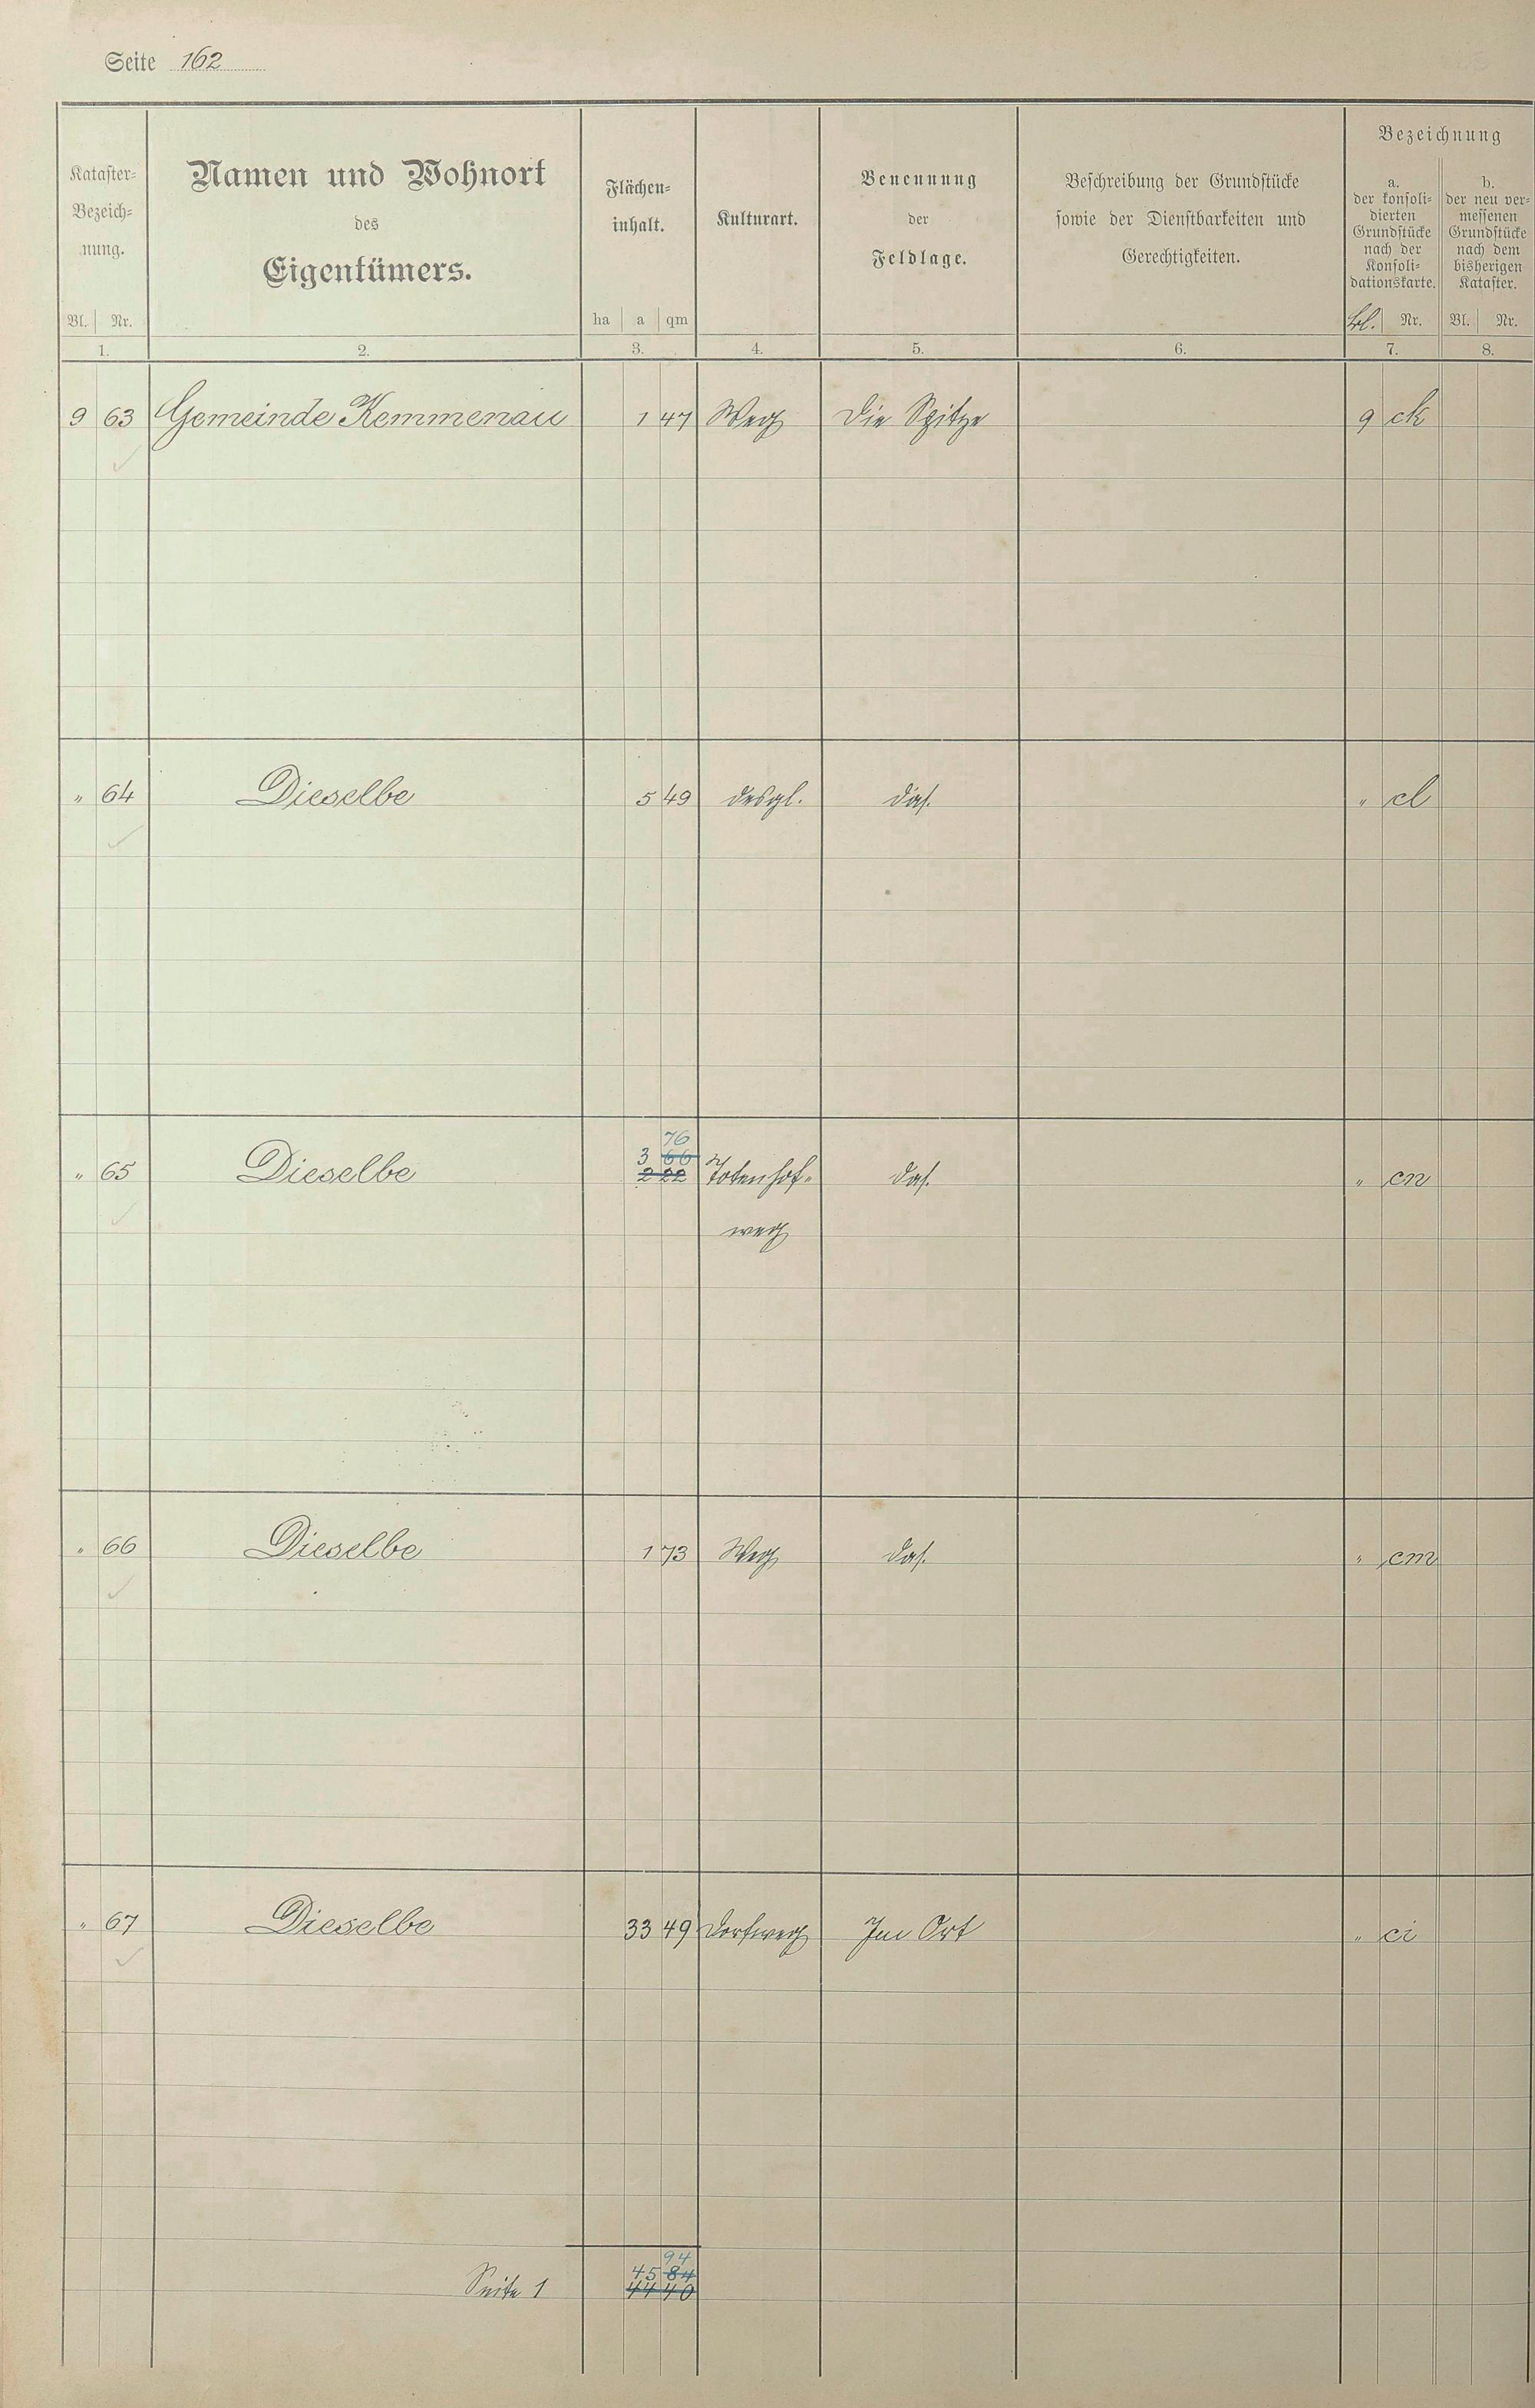 Seite 162
Kataster-
Bezeich-
nung.
Bl. Nr.
1.
Namen und Wohnort
des
Eigentümers.
2.
Flächen-
inhalt.
ha a qm
3.
Kulturart.
4.
Benennung
der
Feldlage.
5.
Beschreibung der Grundstücke
sowie der Dienstbarkeiten und
Gerechtigkeiten.
6.
Bezeichnung
a.
der konsoli-
dierten
Grundstücke
nach der
Konsoli-
dationskarte.
Bl. Nr.
7.
b.
der neu ver-
messenen
Grundstücke
nach dem
bisherigen
Kataster.
Bl. Nr.
8.
9 63 Gemeinde Kemmenau 1 47 Weg Die Spitze 9 ck
" 64 Dieselbe 5 49 desgl. das. " cl
76
3 66
" 65 Dieselbe 2 22 Totenhof- das. " cn
weg
" 66 Dieselbe 1 73 Weg das. " cm
" 67 Dieselbe 33 49 Dorfweg Im Ort " ci
94
45 84
Seite 1 44 40